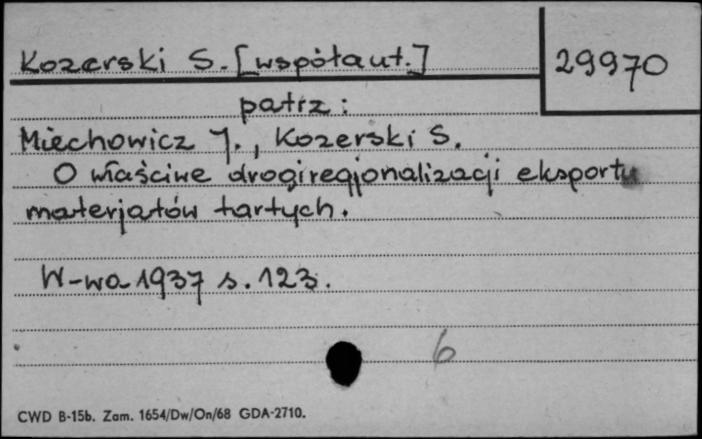 Kozerski S. [współaut.] 29970
patrz:
Miechowicz J., Kozerski S.
O właściwe drogi regjonalizacji eksportu
materjałów tartych.
W-wa 1937 s. 123.
6
CWD B-15b. Zam. 1654/Dw/On/68 GDA-2710.